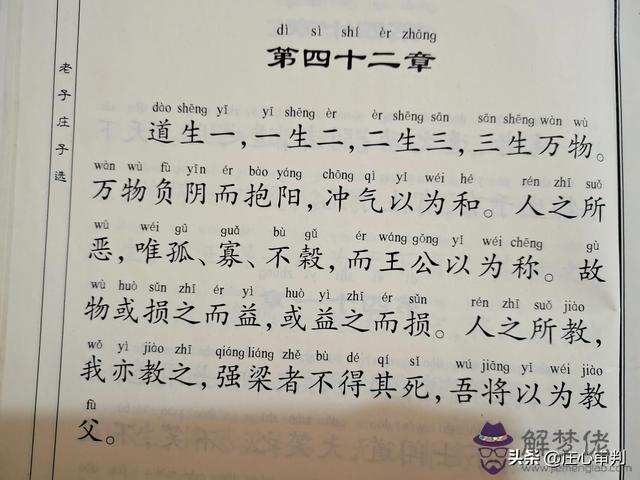 dì sì shí èr zhāng
第四十二章
老子庄子选
dào shēng yī yī shēng èr èr shēng sān sān shēng wàn wù
道生一,一生二,二生三,三生万物。
wàn wù fù yīn ér bào yáng chōng qì yǐ wéi hé rén zhī suǒ
万物负阴而抱阳,冲气以为和。人之所
wù wéi gū guǎ bù gǔ ér wáng gōng yǐ wéi chēng gù
恶,唯孤、寡、不榖,而王公以为称。故
wù huò sǔn zhī ér yì huò yì zhī ér sǔn rén zhī suǒ jiào
物或损之而益,或益之而损。人之所教,
wǒ yì jiào zhī qiáng liáng zhě bù dé qí sǐ wú jiāng yǐ wéi jiào
我亦教之,强梁者不得其死,吾将以为教
fù
父。
解梦佬
头条 @庄心审判
www.jiemenglao.com